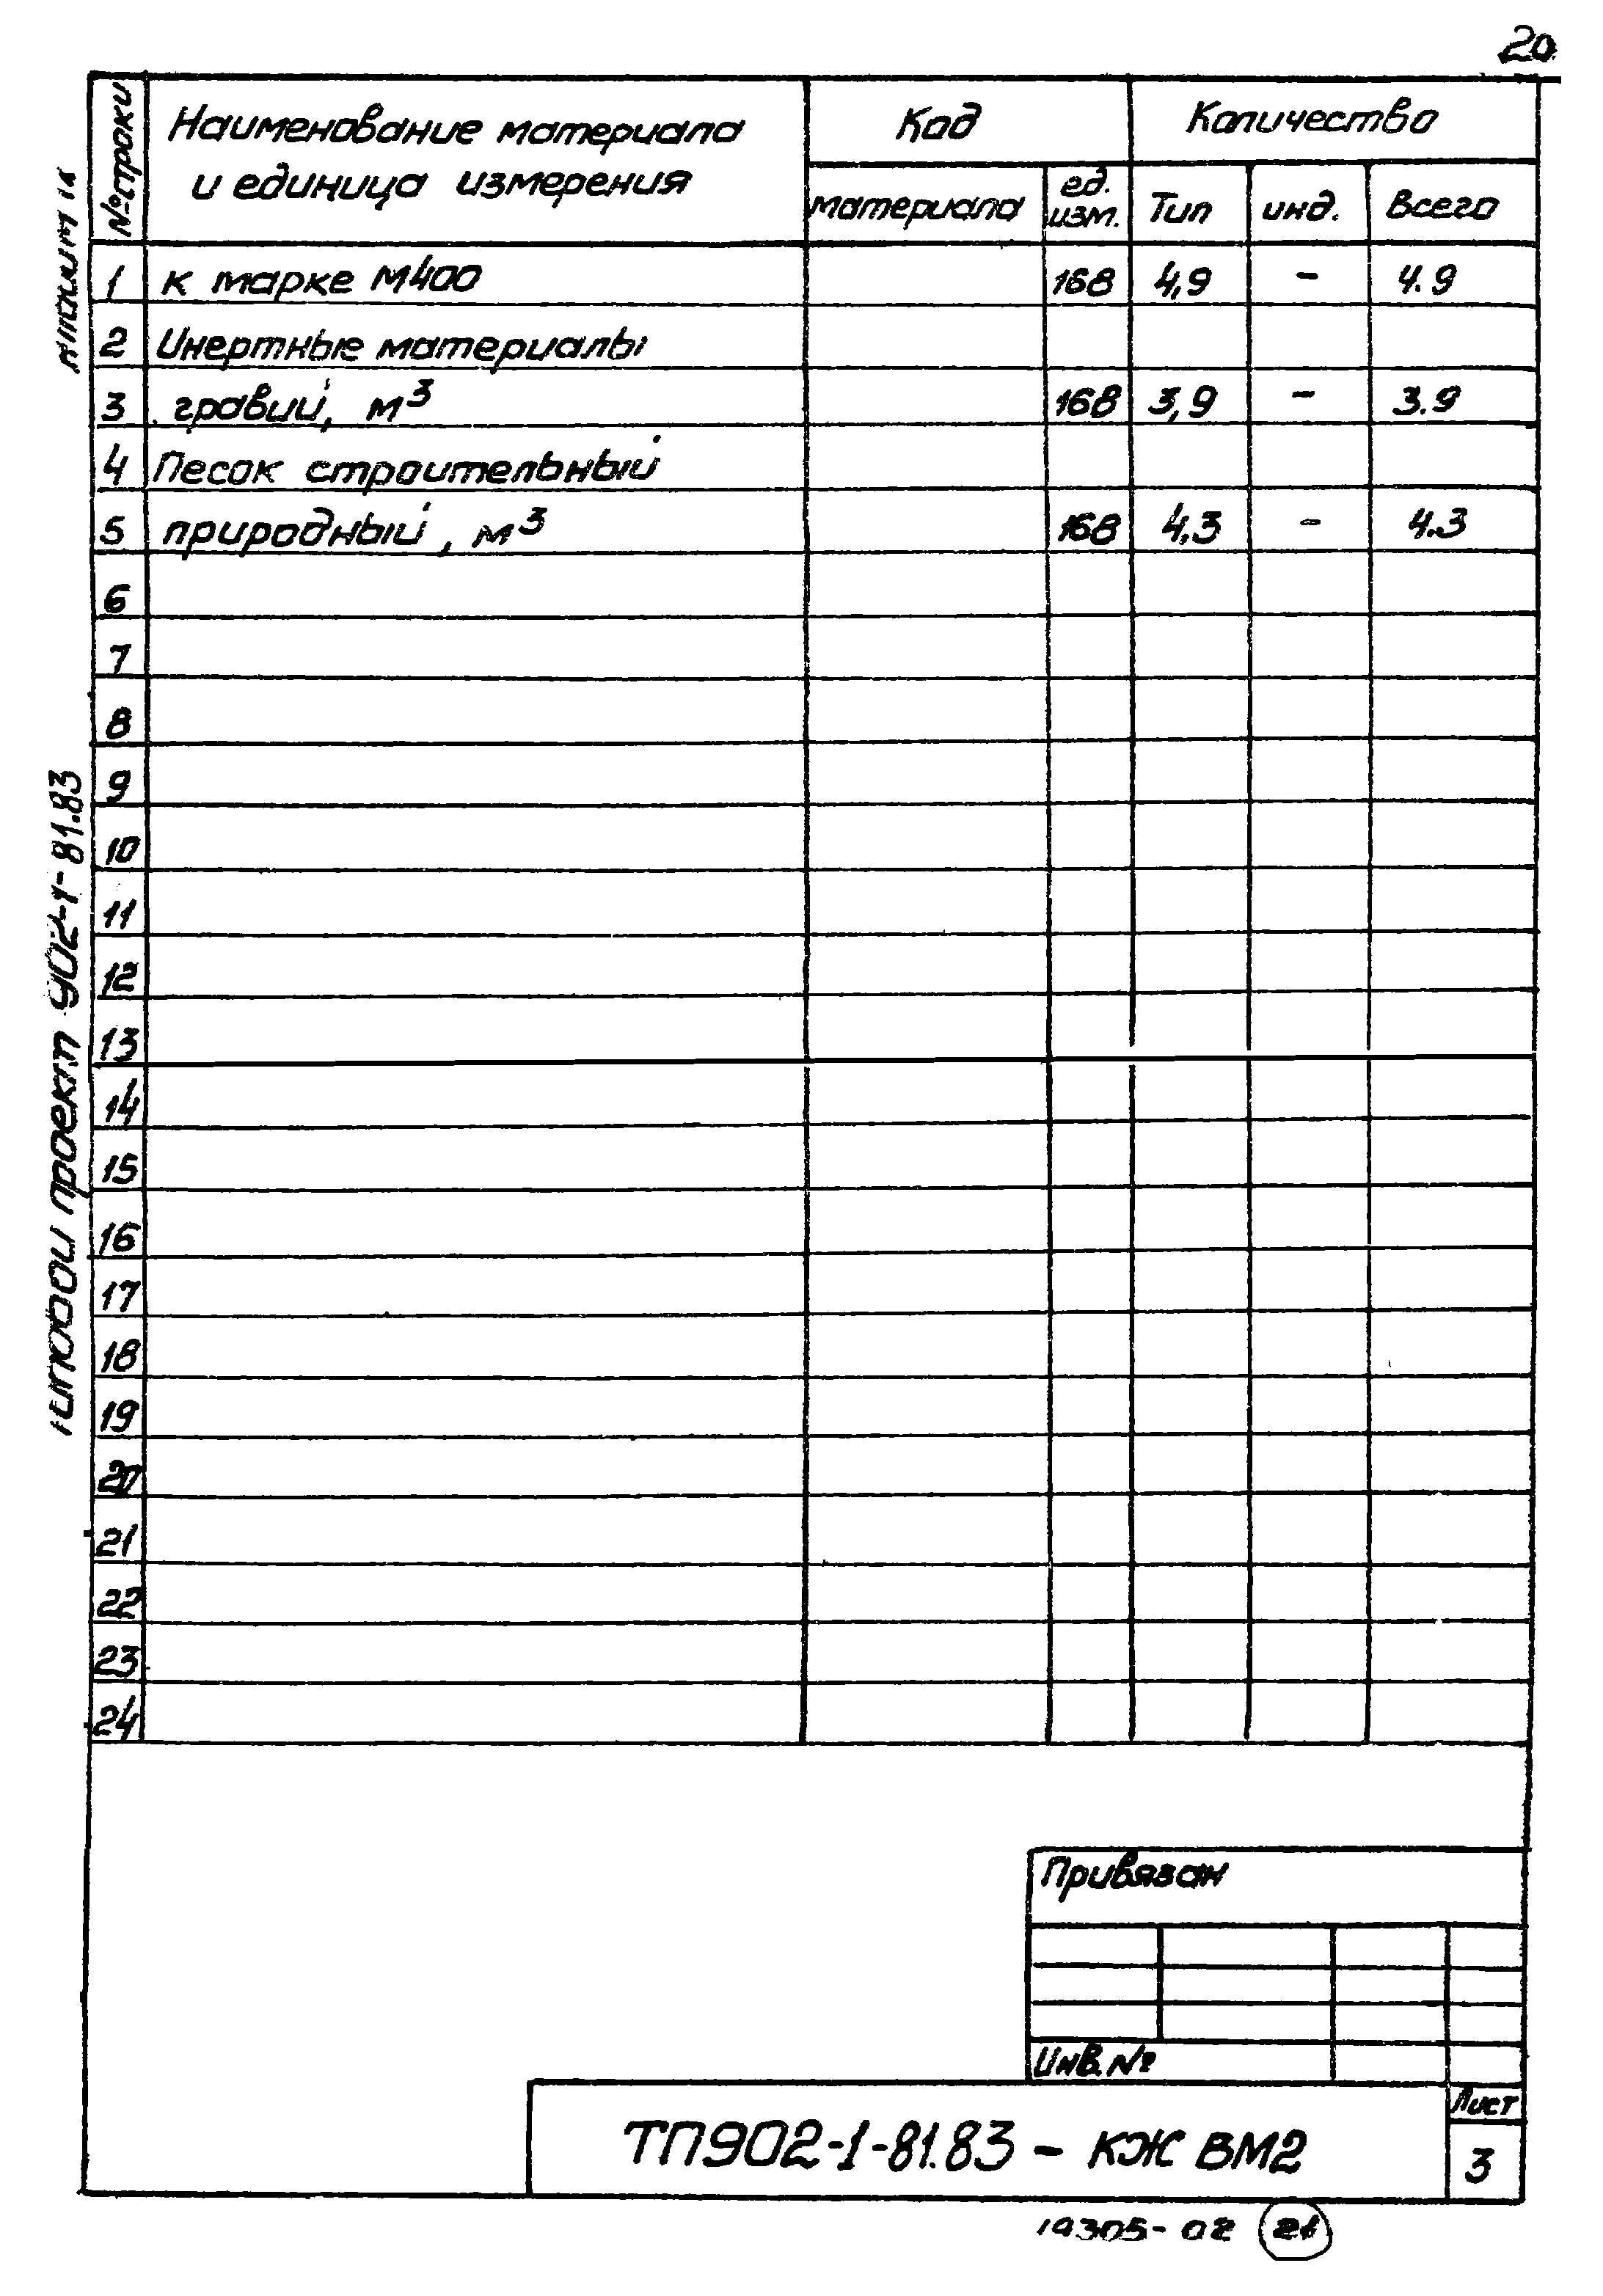 20
№ строки
Наименование материала
и единица измерения
Код
Количество
материала
ед.
изм.
Тип
инд.
Всего
1 к марке М400 168 4,9 - 4.9
2 Инертные материалы
3 гравий, м³ 168 3,9 - 3.9
4 Песок строительный
5 природный, м³ 168 4,3 - 4.3
6
7
8
9
10
11
12
13
14
15
16
17
18
19
20
21
22
23
24
проект 902-1-81.83
Привязан
Инв. №
ТП902-1-81.83 - КЖ ВМ2
Лист
3
19305-02 21